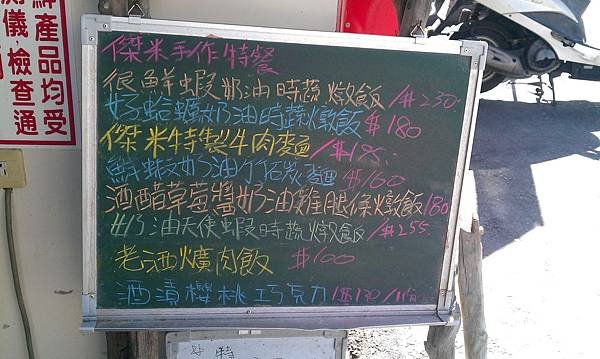 鮮產品均受
測儀檢查通
傑米手作特餐
很鮮蝦奶油時蔬燉飯/$230.
好蛤蠣奶油時蔬燉飯$180
傑米特製牛肉麵/$195.
奶油竹碳麵$160
酒醋草莓醬奶油雞腿條燉飯180
奶油天使蝦時蔬燉飯/$255
老酒爌肉飯 $100
酒漬櫻桃巧克力1$130/1片
特